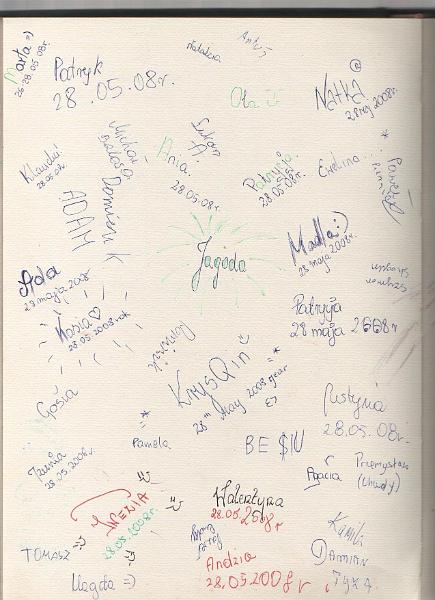 Marta =)
26-28.05.08r.
Patryk
28.05.08r.
Natalia
Ola
Natka
28 maj 2008r.
Klaudia
28.05.08r.
Michał
ADAM
Dominik
Ania
28.05.08r.
Patrycja
28.05.08r.
Ewelina
Paweł
Jagoda
Madla :)
28 maja 2008r.
Ada
28 maja 2008
Kasia ♡
28.05.2008 rok
Patrycja
28 maja 2008r
KrysQin
28th May 2008 year
Gosia
Justyna
28.05.08r.
Pamela
BE $IU
28.05.2008r.
Agacia
Przemysław
28.05.2008r
Walentyna
28.05.2008r
TOMASZ =)
Kamila
DAMIAN
Andzia
28.05.2008r
Magda =)